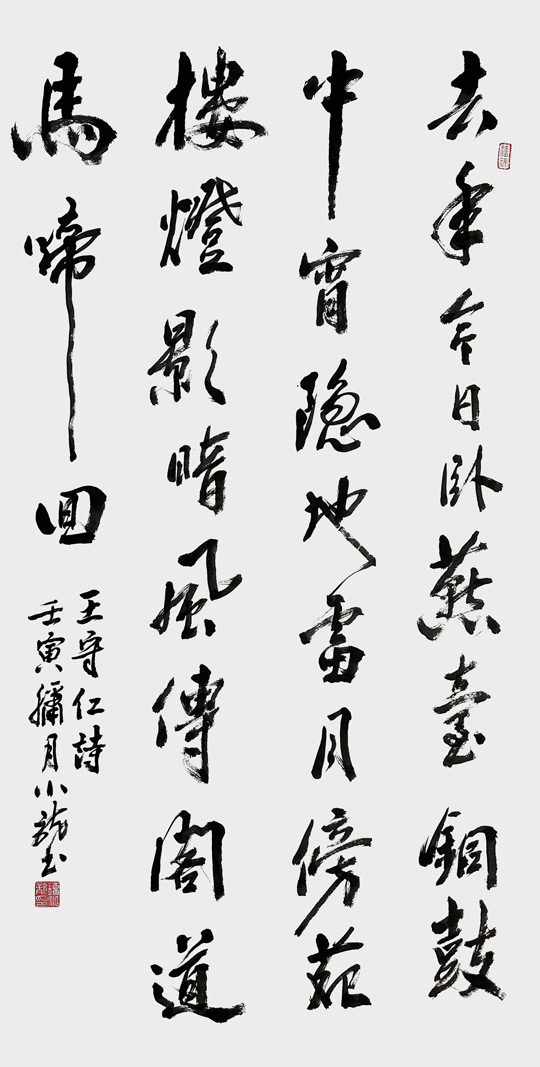 去年今日卧燕臺銅鼓
中宵隐地雷月傍苑
樓燈影暗風傳閣道
馬啼回
王守仁詩
壬寅彌月小龍書